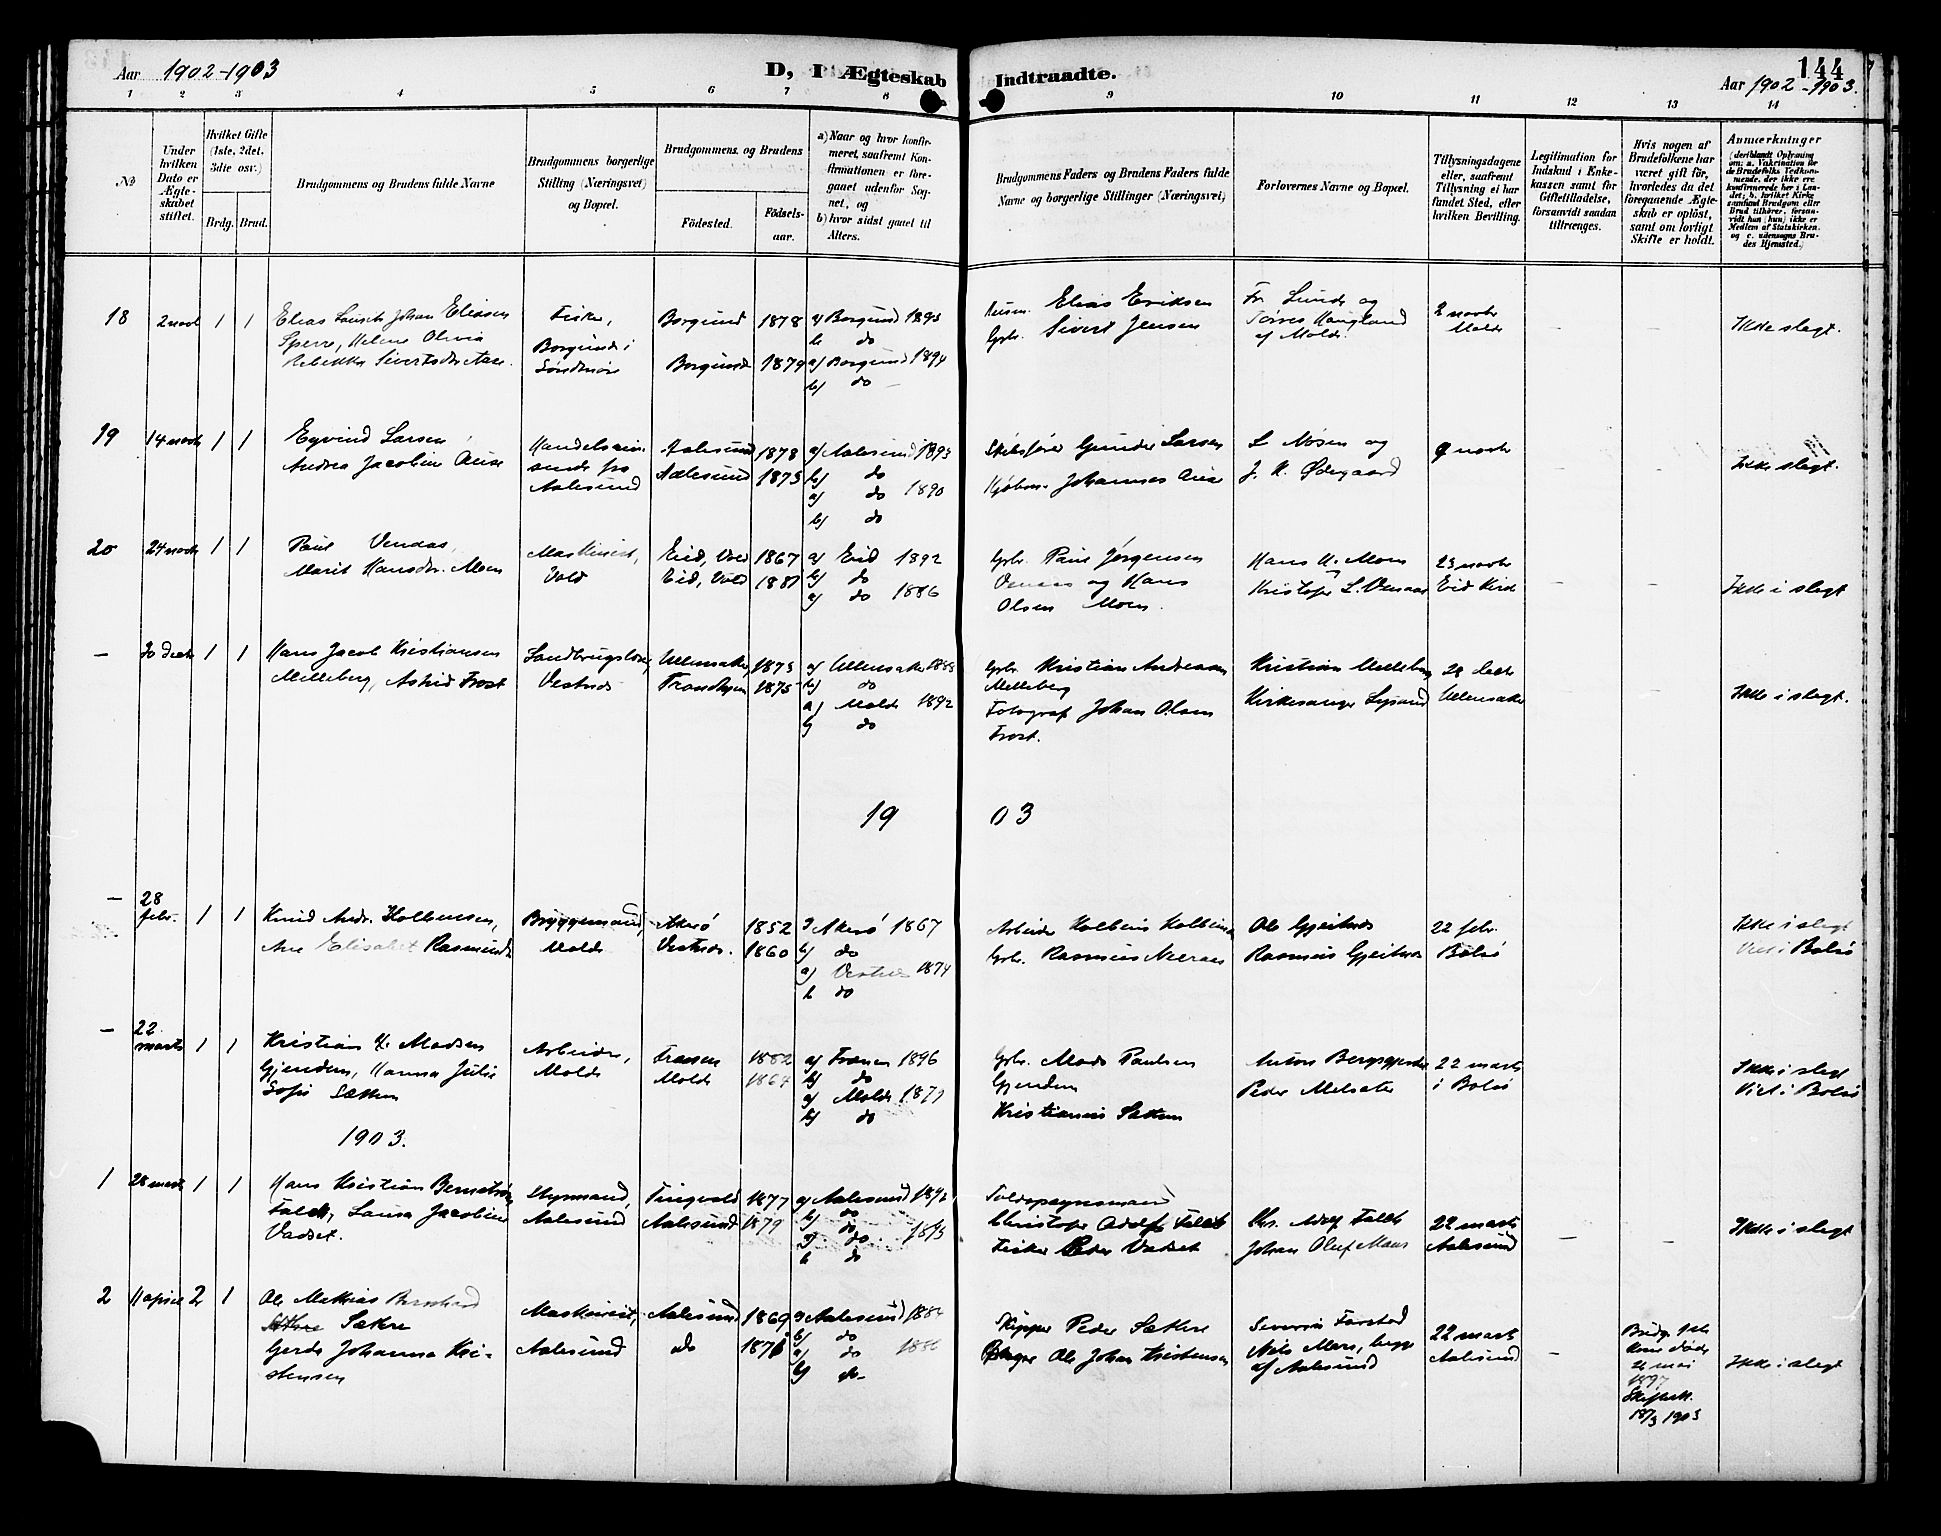 Aar 1902-1903
D, I Ægteskab Indtraadte.
144
Aar 1902-1903.
1 2 3 4 5 6 7 8 9 10 11 12 13 14
No
Under hvilken Dato er Ægteskabet stiftet.
Hvilket Gifte (1ste, 2det, 3dte osv.)
Brdg. Brud.
Brudgommens og Brudens fulde Navne
Brudgommens borgerlige Stilling (Næringsvei) og Bopæl.
Brudgommens og Brudens
Fødested.
Fødselsaar.
a) Naar og hvor konfirmeret, saafremt Konfirmationen er foregaaet udenfor Sognet, og
b) hvor sidst gaaet til Alters.
Brudgommens Faders og Brudens Faders fulde Navne og borgerlige Stillinger (Næringsvei)
Forlovernes Navne og Bopæl.
Tillysningsdagene eller, saafremt Tillysning ei har fundet Sted, efter hvilken Bevilling.
Legitimation for Indskud i Enkekassen samt for Giftetilladelse, forsaavidt saadan tiltrænges.
Hvis nogen af Brudefolkene har været gift før, hvorledes da det foregaaende Ægteskab er opløst, samt om lovligt Skifte er holdt.
Anmerkninger
18 2 novb 1 1
Elias Johan Eliassen
Sperre, Helene Olivia
Rebekka Sivertsdtr Aase.
Fisker,
Borgund i
Søndmøre
Borgund 1878
Borgund 1879
a) Borgund 1893
b do
a) Borgund 1894
b) do
Elias Eriksen
Gbr. Sivert Jensen
Fr. Lunde og
Tørres Haugland
af Molde.
2 novbr
Molde
Ikke slegt.
19 14 novb 1 1
Eyvind Larsen
Andrea Jacobine Aase
Aalesund
Aalesund 1878
Aalesund 1873
a) Aalesund 1893
b) do
a) do 1890
b) do
Gunder Larsen
Johannes Aase
L Nøsen og
J. K. Ødegaard
9 novbr
Ikke slegt.
20 24 novb 1 1
Paul Venaas,
Marit Hansdtr. Moen
Maskinist,
Vold
Eid, Vold 1867
Eid, Vold 1887
a) Eid 1892
b) do
a) do 1886
Gbr. Paul Jørgensen
Venaas og Hans
Olsen Moen.
Hans H. Moen
Kristofer L. Venaas
23 novbr
Eid Kirke
Ikke i slegt
– 30 decb 1 1
Hans Jacob Kristiansen
Melleberg, Astrid Frost
Vestnes
Ullensaker 1873
Trondhjem 1875
a) Ullensaker 1888
b) do
a) Molde 1892
b) do
Gbr. Kristian Andreasen
Melleberg
Fotograf Johan Olsen
Frost.
Kristian Melleberg
Kirkesanger
28 decb
Ullensaker
Ikke i slegt.
19 03
– 28 febr. 1 1
Knud Andr. Kolbensen,
Ane Elisabet Rasmusdr
Bryggemand,
Molde
Akerø 1852
Vestnes. 1860
a Akerø 1867
b) do
a) Vestnes 1874
b do
Arbeider Kolbein Kolbeinsen
Gbr. Rasmus
Ole Gjeitnes
Rasmus Gjeitnes
22 febr.
Bolsø
Ikke i slegt
Viet i Bolsø
– 22 marts 1 1
Kristian K. Madsen
Gjendem, Hanna Julie
Sofie Sætten
Arbeider,
Molde
Frænen 1882
Molde 1864
a) Frænen 1896
b) do
a) Molde 1877
b) do
Gbr. Mads Paulsen
Gjendem
Kristianus Sætten
Anton
Peder Melsæter
22 marts
i Bolsø
Ikke i slegt
Viet i Bolsø
1903.
1 28 marts 1 1
Hans Kristian Bernstrøm
Falck, Laura Jacobine
Vadset.
Styrmand,
Aalesund
Tingvold 1877
Aalesund 1879
a) Aalesund 1892
b) do
a) do 1893
b do
Toldopsynsmand
Christofer Adolf Falck
Fisker Peder Vadset
Chr. Adolf Falck
Johan Oluf Moen
22 marts
Aalesund
Ikke i slegt
2 11 april 2 1
Ole Mathias Bernhard
Sæthre
Gerda Johanna Kri-
stensen
Maskinist,
Aalesund
Aalesund 1869
do 1871
a Aalesund 1884
b) do
a) do 1886
b) do
Skipper Peder Sæthre
Ole Johan Kristensen
Severin Farstad
Nils Moen, begge
af Aalesund
22 marts
Aalesund
Brdg. 1ste
Kone døde
21 mai
1897
Skifteatt.
18/3 1903
Ikke i slegt